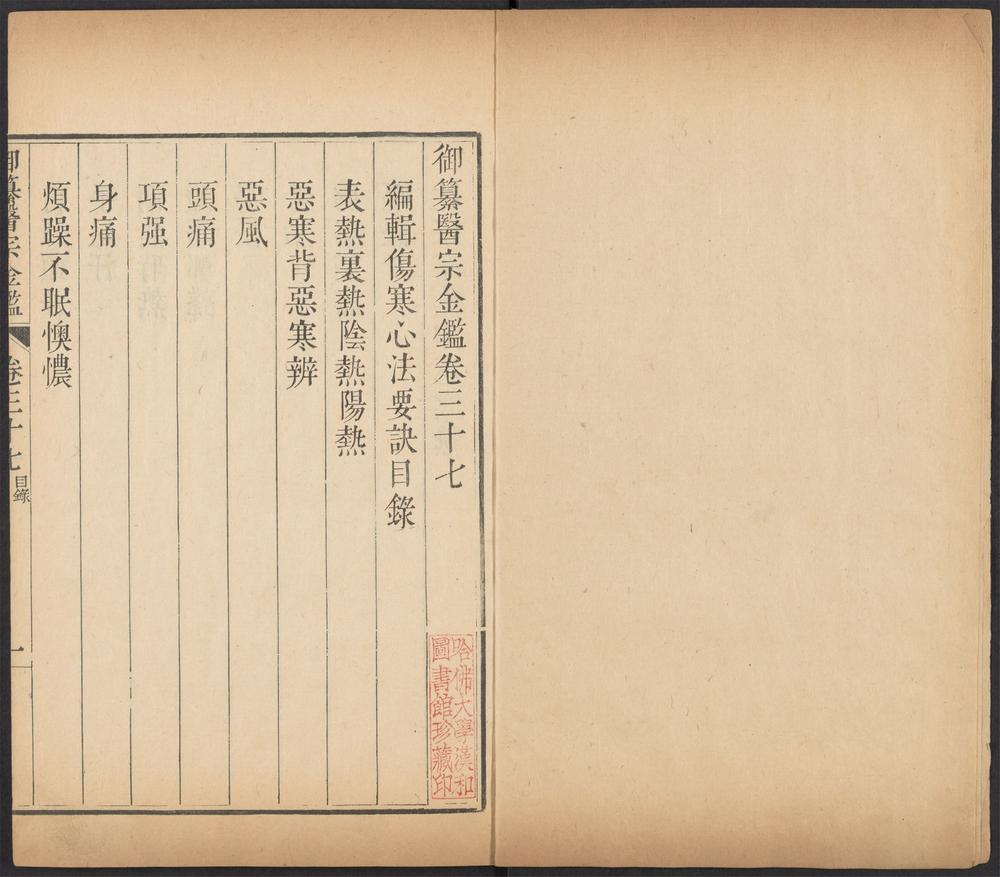 御纂醫宗金鑑卷三十七
編輯傷寒心法要訣目錄
表熱裏熱陰熱陽熱
惡寒背惡寒辨
惡風
頭痛
項强
身痛
煩躁不眠懊憹
御纂醫宗金鑑 卷三十七 目錄 一
哈佛大學漢和
圖書館珍藏印